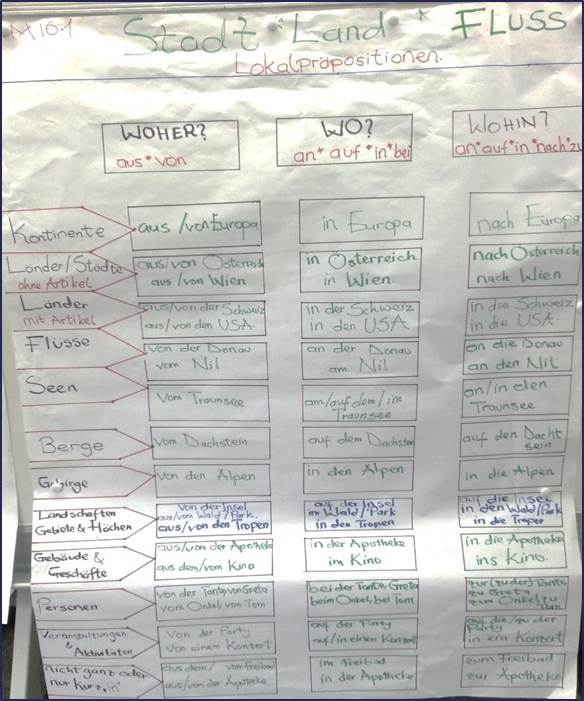 M 16.1
Stadt * Land * FLUSS
Lokalpräpositionen.
WOHER?
aus * von
WO?
an * auf * in * bei
WOHIN?
an * auf * in * nach * zu
Kontinente
aus / von Europa
in Europa
nach Europa
Länder / Städte
ohne Artikel
aus / von Österreich
aus / von Wien
in Österreich
in Wien.
nach Österreich
nach Wien
Länder
mit Artikel
aus / von der Schweiz
aus / von den USA
in der Schweiz
in den USA
in die Schweiz
in die USA
Flüsse
von der Donau
vom Nil
an der Donau
am Nil
an die Donau
an den Nil
Seen
vom Traunsee
am/auf dem/im
Traunsee
an/in den
Traunsee
Berge
vom Dachstein
auf dem Dachstein
auf den Dacht
sein
Gebirge
von den Alpen
in den Alpen
in die Alpen
Landschaften
Gebiete & Flächen
von der Insel
aus/vom Wald / Park.
aus/von den Tropen
auf der Insel
im Wald / Park
in den Tropen
auf die Insel
in den Wald/Park
in die Tropen
Gebäude &
Geschäfte
aus/von der Apotheke
aus dem/vom Kino
in der Apotheke
im Kino
in die Apotheke
ins Kino.
Personen
von der Tante, von Greta
vom Onkel, von Tom
bei der Tante, Greta
beim Onkel, bei Tom
zur (zu der) Tante
zu Greta
zum Onkel, zu
Tom
Veranstaltungen
& Aktivitäten
von der Party
von einem Konzert
auf der Party
auf/in einem Konzert
auf die / zu der
Party
in ein Konzert
nicht ganz oder
nur kurz „in"
aus dem / vom Freibad
aus/von der Apotheke
im Freibad
in der Apotheke
zum Freibad
zur Apotheke